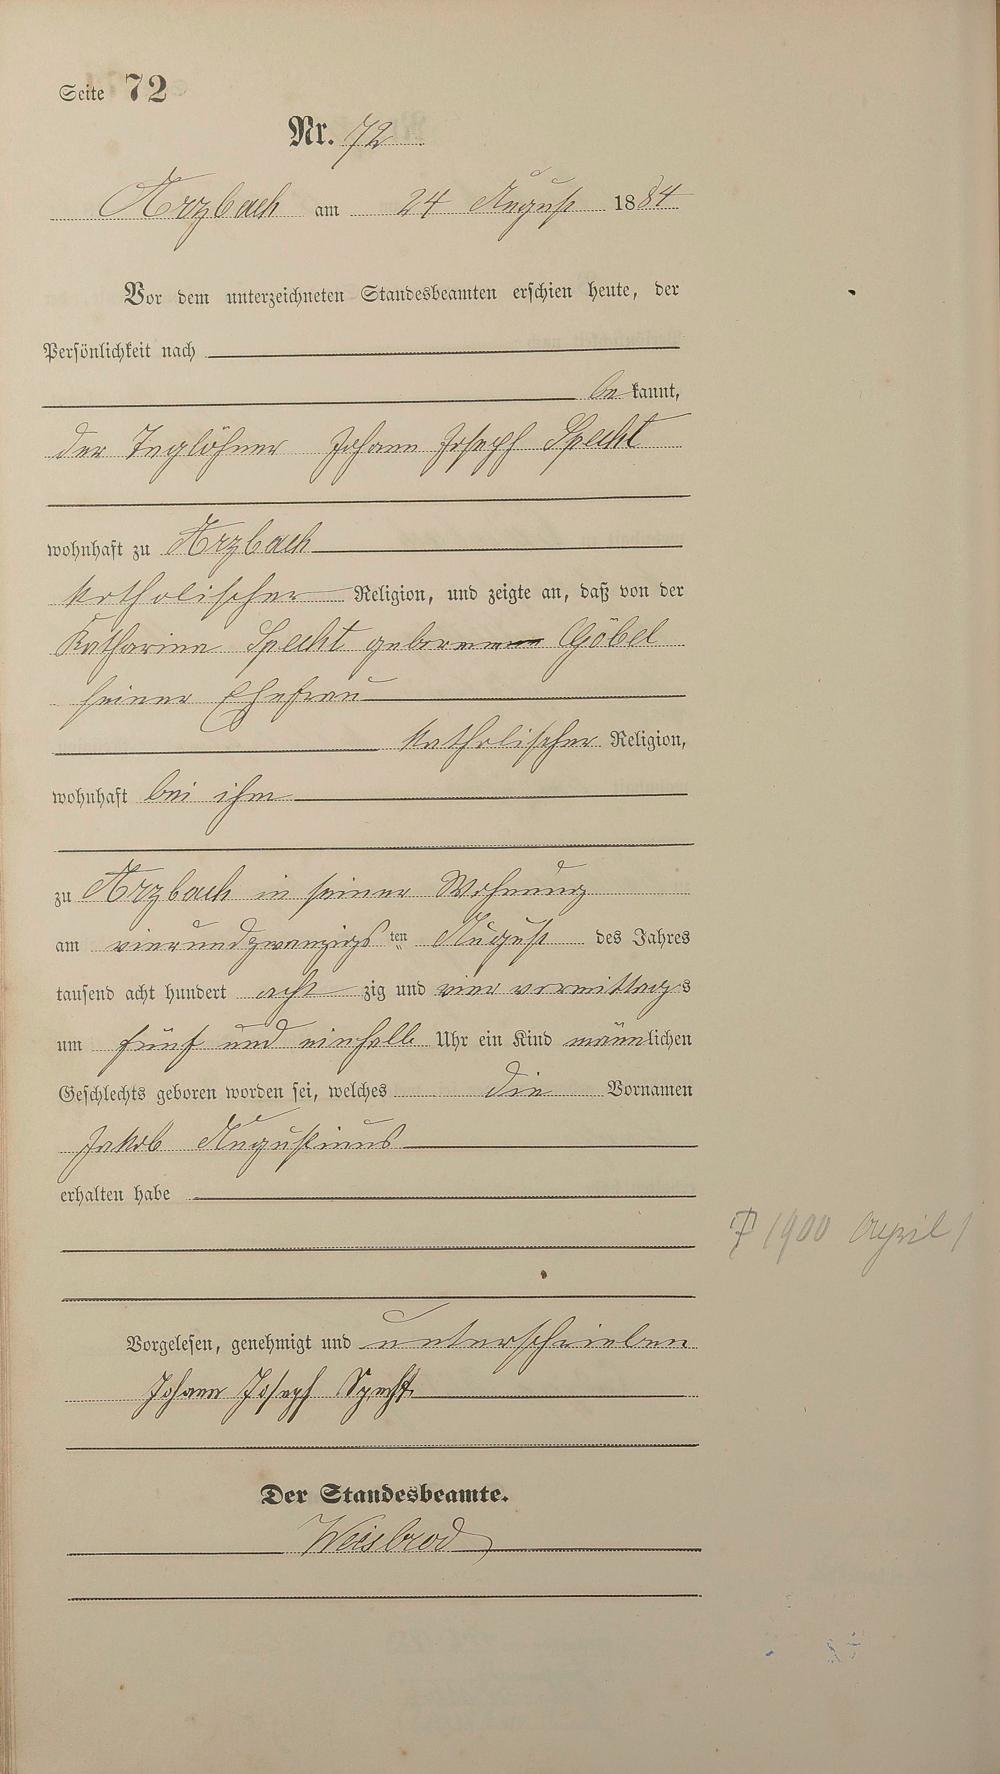 Seite 72
Nr. 72
Arzbach am 24 August 1884
Vor dem unterzeichneten Standesbeamten erschien heute, der
Persönlichkeit nach
be kannt,
der Taglöhner Johann Joseph Specht
wohnhaft zu Arzbach
katholischer Religion, und zeigte an, daß von der
Katharina Specht geborenen Göbel
seiner Ehefrau
katholischer Religion,
wohnhaft bei ihm
zu Arzbach in seiner Wohnung
am vierundzwanzigs ten August des Jahres
tausend acht hundert acht zig und vier vormittags
um fünf und einhalb Uhr ein Kind männlichen
Geschlechts geboren worden sei, welches die Vornamen
Jakob Augustinus
erhalten habe
† 1900 April
Vorgelesen, genehmigt und unterschrieben
Johann Joseph Specht
Der Standesbeamte.
Weisbrod